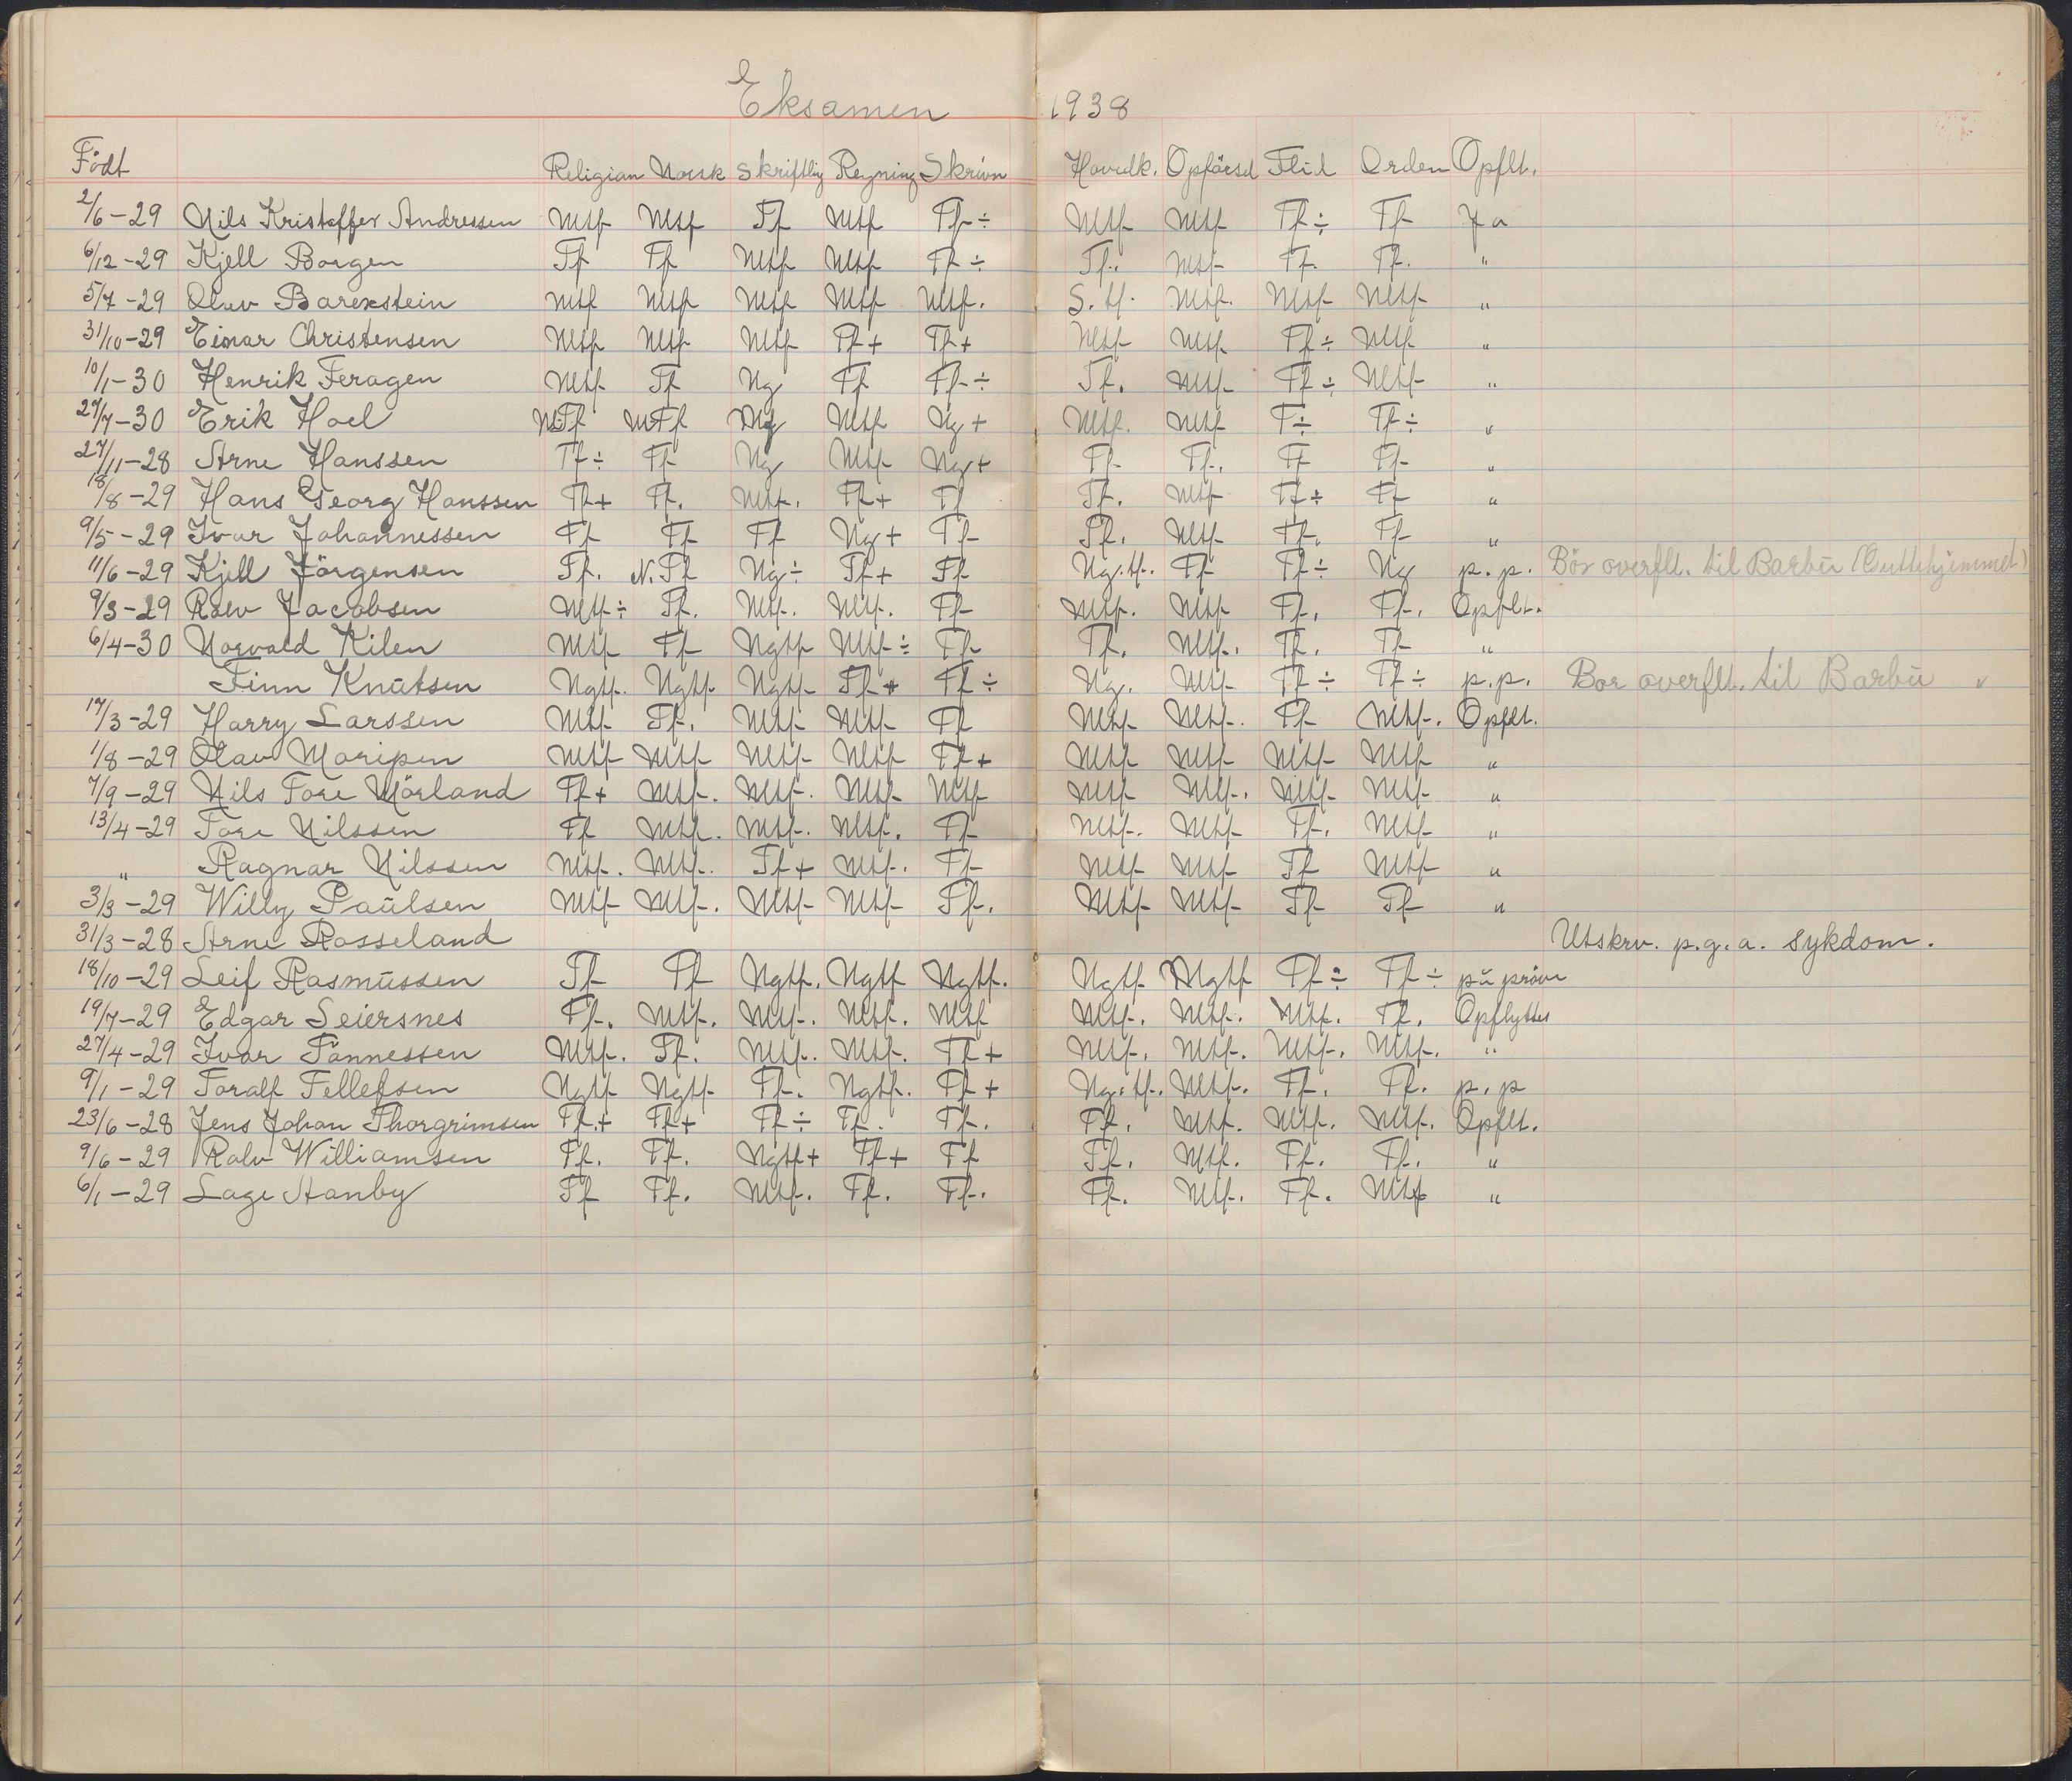 Eksamen 1938
Födt Religion Norsk Skriftlig Regning Skrivn Hovedk. Opförsel Flid Orden Opflt.
2/6-29 Nils Kristoffer Andressen Mtf Mtf Tf Mtf Tf÷ Mtf Mtf Tf÷ Tf Ja
6/12-29 Kjell Borgen Tf Tf Mtf Mtf Tf÷ Tf. Mtf Tf. Tf. "
5/7-29 Olav Barexstein Mtf Mtf Mtf Mtf Mtf. S.tf. Mtf. Mtf Mtf "
31/10-29 Einar Christensen Mtf Mtf Mtf Tf+ Tf+ Mtf Mtf Tf÷ Mtf "
10/1-30 Henrik Feragen Mtf Tf Ng Tf Tf÷ Tf. Mtf Tf÷ Mtf "
27/7-30 Erik Hoel Mtf Ng+ Mtf. Mtf T÷ Tf÷ "
27/11-28 Arne Hanssen Tf÷ Tf Ng Mtf Ng+ Tf Tf. Tf Tf "
18/8-29 Hans Georg Hanssen Tf+ Tf. Mtf. Tf+ Tf Tf. Mtf Tf÷ Tf "
9/5-29 Ivar Johannessen Tf Tf Tf Ng+ Tf Tf. Mtf Tf. Tf "
11/6-29 Kjell Jörgensen Tf. N.Tf Ng÷ Tf+ Tf Ng.tf. Tf Tf÷ Ng p.p. Bör overflt. til Barbu (Guttehjemmet)
9/3-29 Rolv Jacobsen Mtf÷ Tf. Mtf. Mtf. Tf Mtf. Mtf Tf. Tf. Opflt.
6/4-30 Norvald Kilen Mtf Tf Ngtf Mtf÷ Tf Tf. Mtf. Tf. Tf "
Finn Knutsen Ngtf. Ngtf. Ngtf Tf+ Tf÷ Ng. Mtf Tf÷ Tf÷ p.p. Bor overflt. til Barbu "
17/3-29 Harry Larssen Mtf Tf. Mtf Mtf Tf Mtf Mtf. Tf Mtf. Opflt.
1/8-29 Olav Moripen Mtf Mtf Mtf Mtf Tf+ Mtf Mtf Mtf Mtf "
7/9-29 Nils Tore Mörland Tf+ Mtf. Mtf. Mtf Mtf Mtf Mtf. Mtf Mtf "
13/4-29 Tore Nilssen Tf Mtf. Mtf. Mtf. Tf Mtf. Mtf Tf. Mtf "
" Ragnar Nilssen Mtf. Mtf. Tf+ Mtf. Tf Mtf Mtf Tf Mtf "
3/3-29 Willy Paulsen Mtf Mtf. Mtf Mtf Tf. Mtf Mtf Tf Tf "
31/3-28 Arne Rosseland Utskrv. p.g.a. sykdom.
18/10-29 Leif Rasmussen Tf Tf Ngtf. Ngtf Ngtf. Ngtf Ngtf Tf÷ Tf÷ på pröve
19/7-29 Edgar Seiersnes Tf. Mtf. Mtf. Mtf. Mtf Mtf. Mtf. Mtf. Tf. Opflyttes
27/4-29 Ivar Tönnessen Mtf. Tf. Mtf. Mtf. Tf+ Mtf. Mtf. Mtf. Mtf. "
9/1-29 Toralf Tellefsen Ngtf Ngtf Tf. Ngtf. Tf+ Ng.tf. Mtf. Tf. Tf. p.p
23/6-28 Jens Johan Thorgrimsen Tf.+ Tf+ Tf÷ Tf. Tf. Tf. Mtf. Mtf. Mtf. Opflt.
9/6-29 Rolv Williamsen Tf. Tf. Ngtf+ Tf+ Tf Tf. Mtf. Tf. Tf. "
6/1-29 Lage Aanby Tf Tf. Mtf. Tf. Tf. Tf. Mtf. Tf. Mtf "